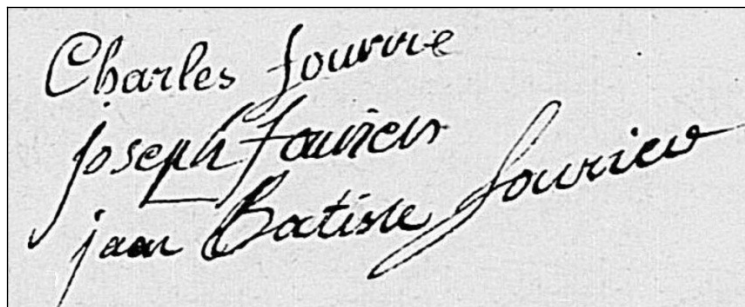 Charles fourrie
joseph fouriers
jean Batiste fourier